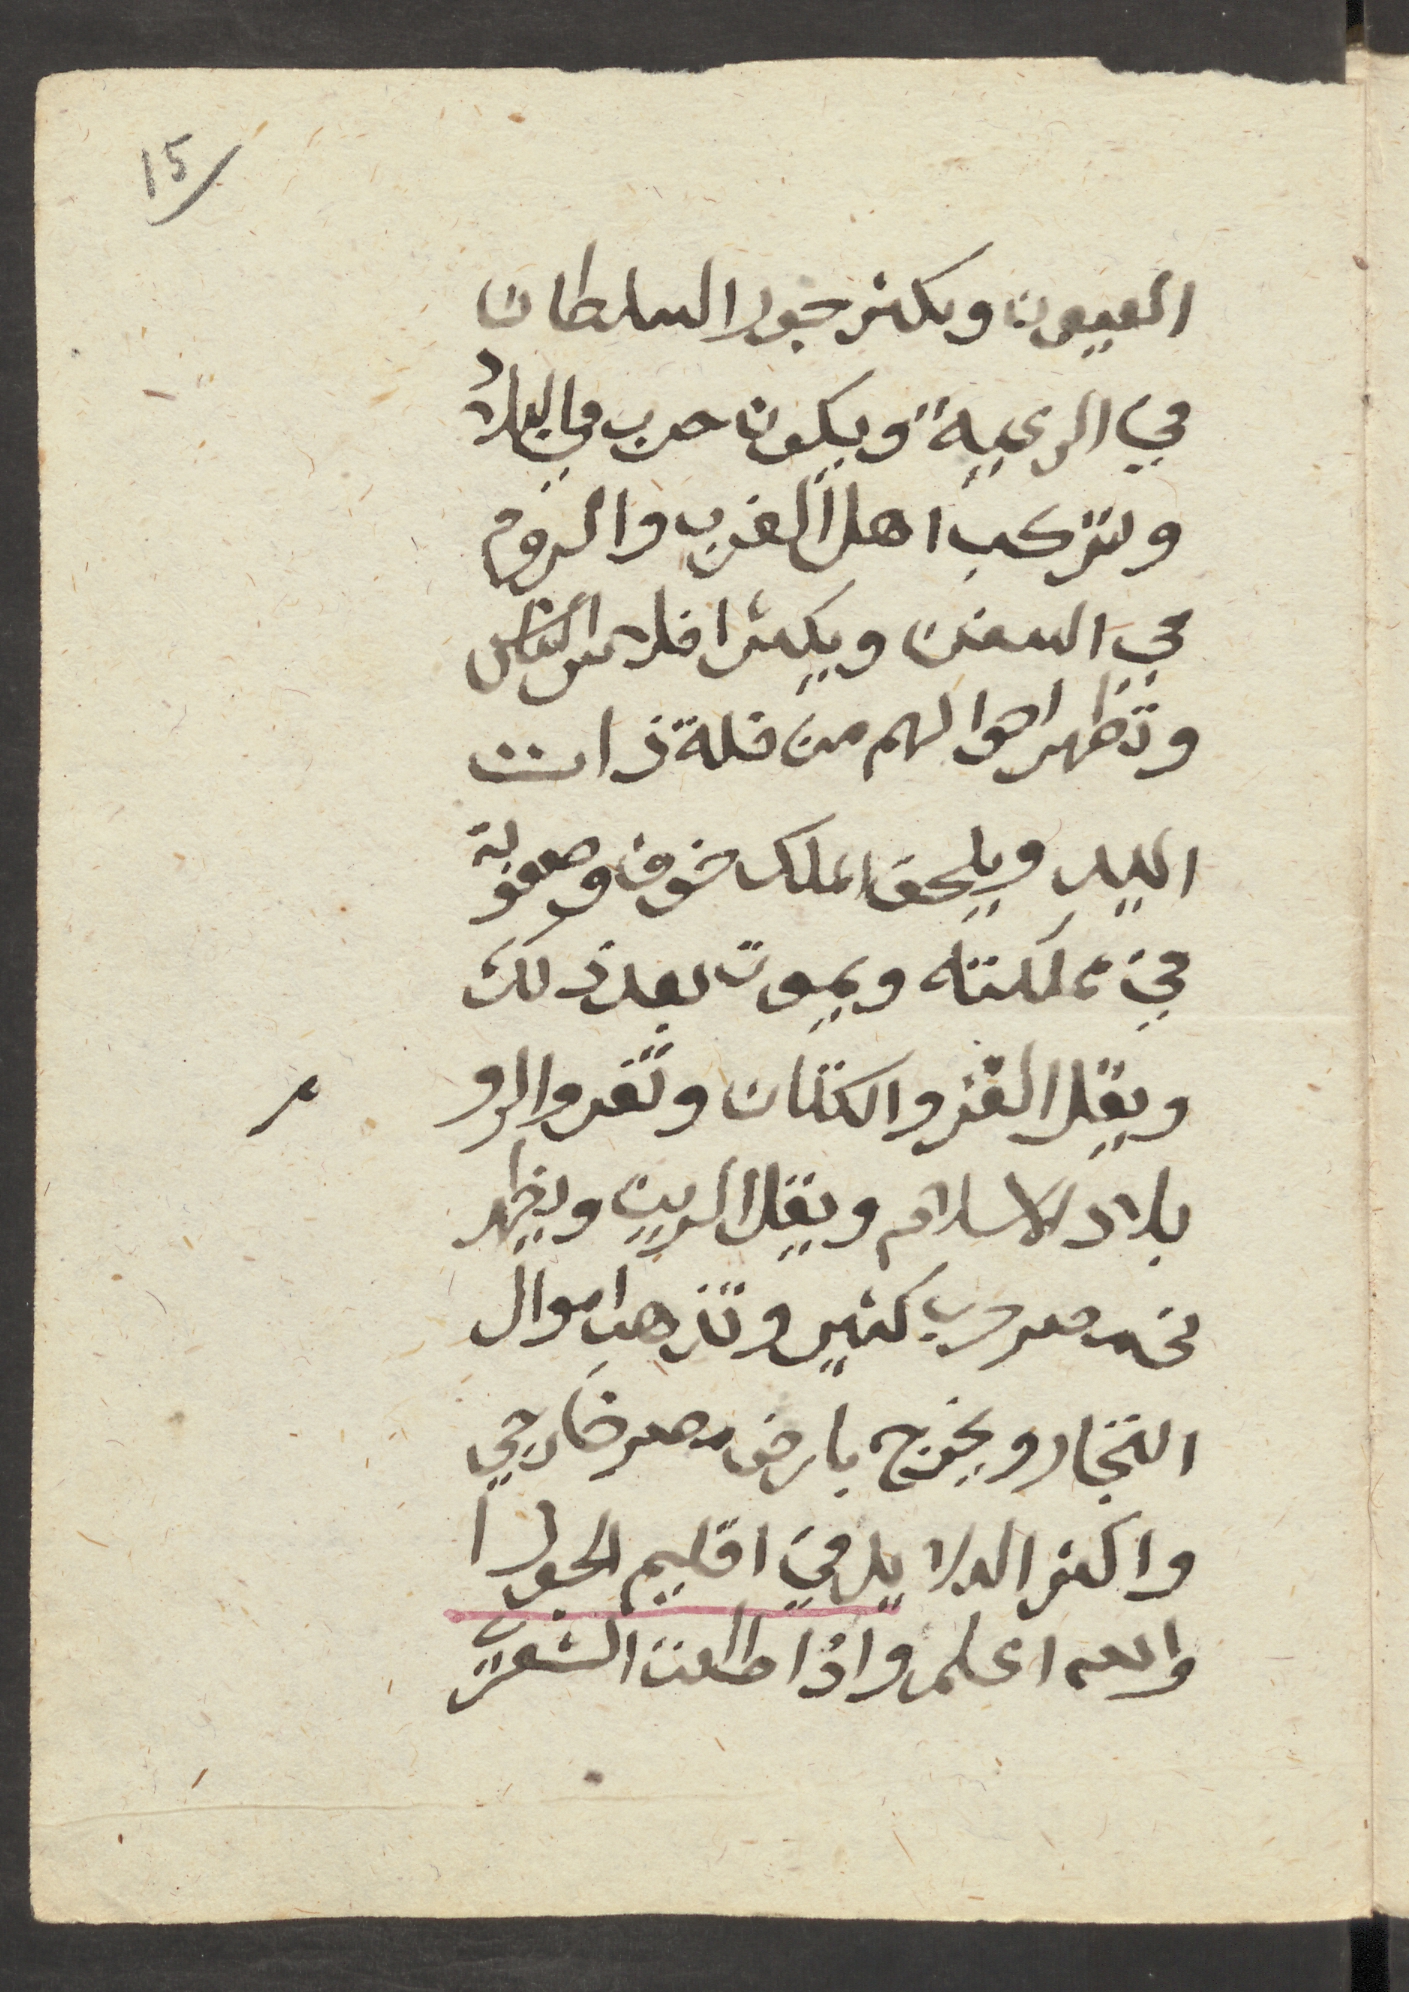 15
العيون ويكثر جور السلطان
في الرعية ويكون حرب في البلاد
وتتركب اهل الغرب والروم
في السفن ويكثر افلاس الناس
وتظهر اهوالهم من قلة ذات
اليد ويلحق الملك خوف وصعوبة
في مملكته ويموت بعد ذلك
ويقل القز والكتان وتغروا الرو
بلاد الاسلام ويقل الدين ويظهر
في مصر حرب كثير وتذهب اموال
التجار ويخرج بارض مصر خارجي
واكثر الدلايل في اقليم الجوزا
والله اعلم واذا طلعت الشعرى